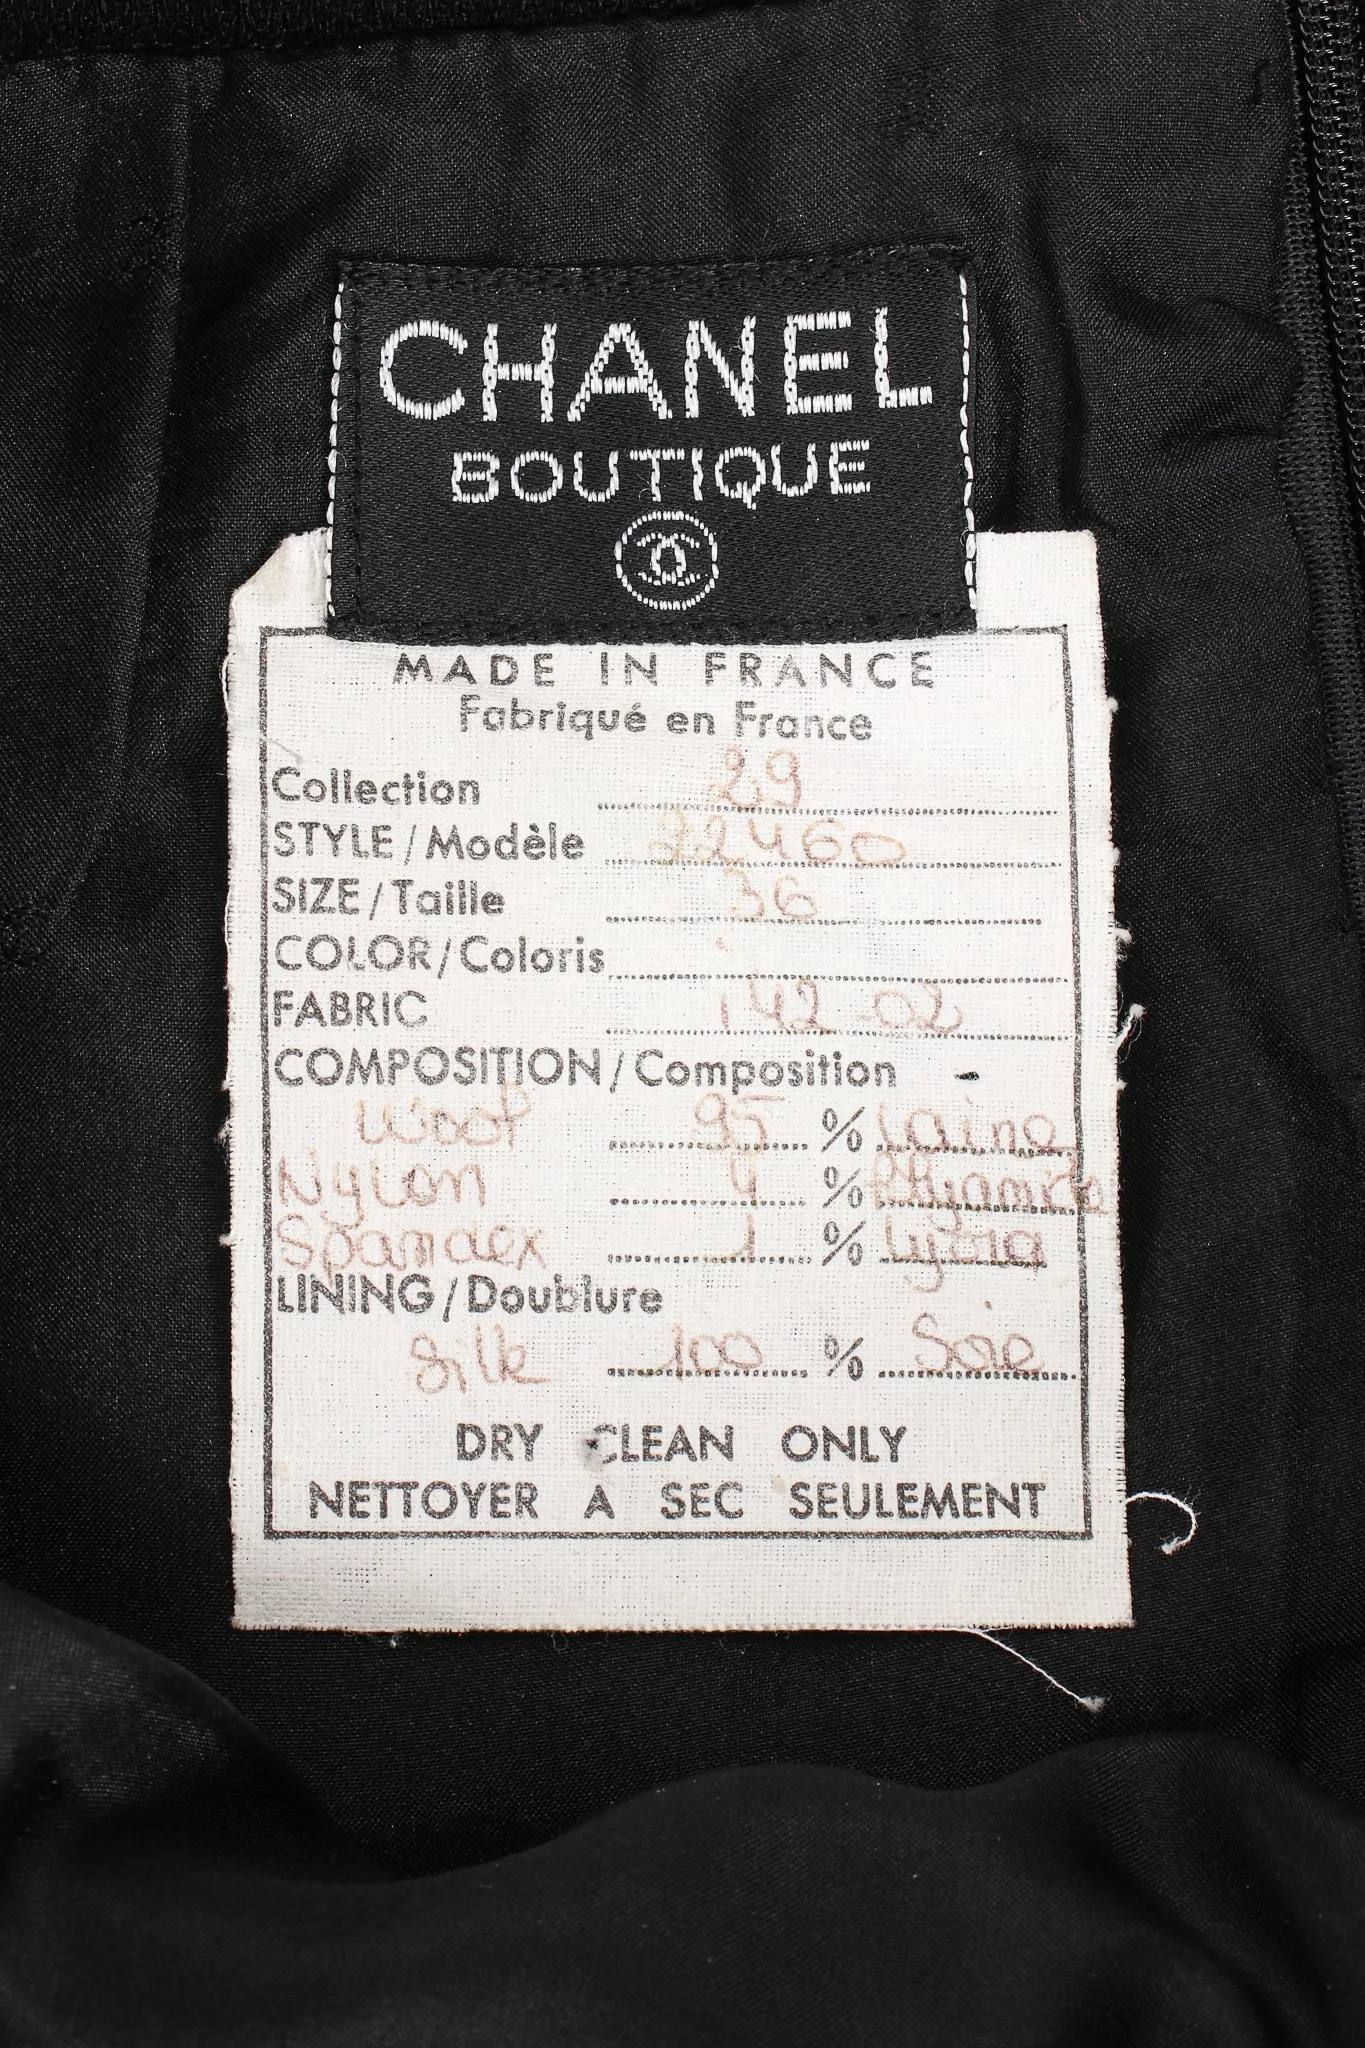 CHANEL
BOUTIQUE
MADE IN FRANCE
Fabriqué en France
Collection 29
STYLE/Modèle 22460
SIZE/Taille 36
COLOR/Coloris
FABRIC 142 02
COMPOSITION/Composition
Wool 95 % Laine
Nylon 4 % Polyamide
Spandex 1 % Lycra
LINING/Doublure
Silk 100 % Soie
DRY CLEAN ONLY
NETTOYER A SEC SEULEMENT